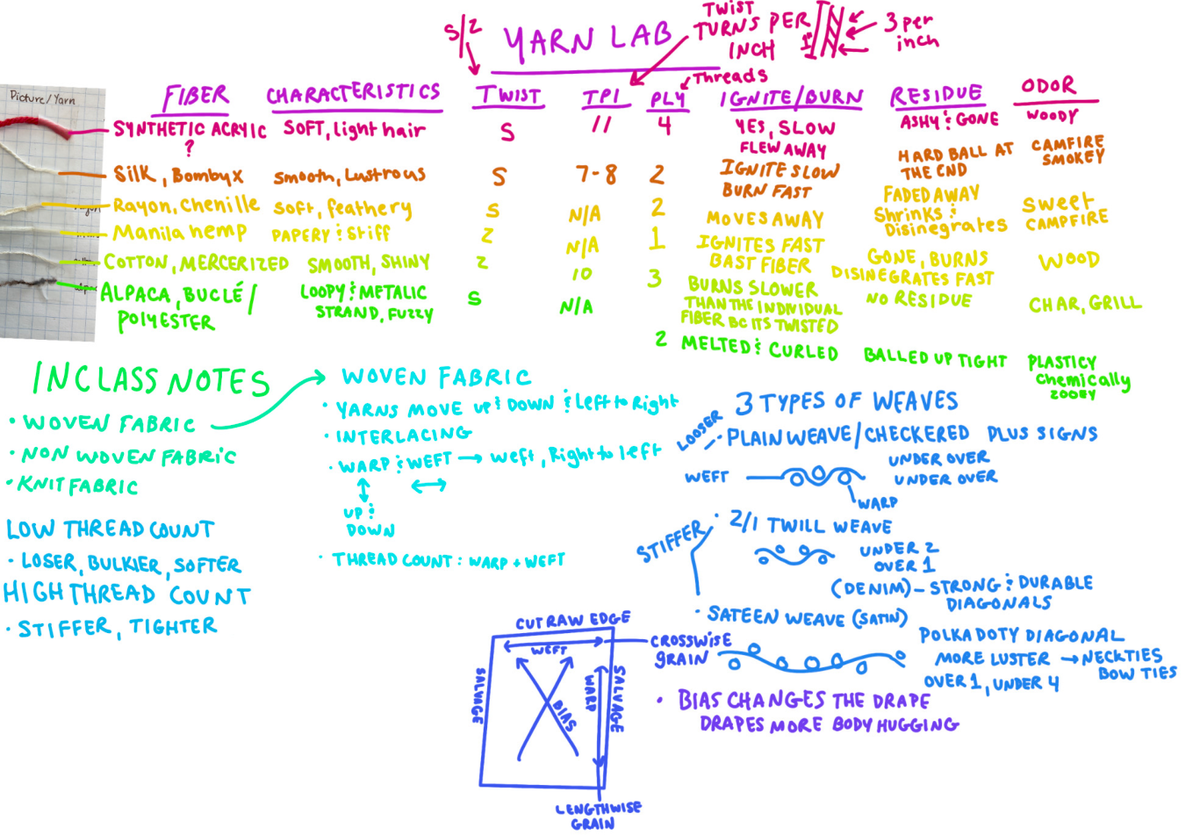 S/Z
YARN LAB
TWIST
TURNS PER
INCH
1"
3 per
inch
Threads
Picture/Yarn
FIBER
CHARACTERISTICS
TWIST
TPI
PLY
IGNITE/BURN
RESIDUE
ODOR
SYNTHETIC ACRYLIC
?
SOFT, light hair
S
11
4
YES, SLOW
FLEW AWAY
ASHY & GONE
WOODY
Silk, Bombyx
Smooth, Lustrous
S
7-8
2
IGNITE SLOW
BURN FAST
HARD BALL AT
THE END
CAMFIRE
SMOKEY
Rayon, Chenille
Soft, feathery
S
N/A
2
MOVES AWAY
FADED AWAY
Shrinks &
Disinegrates
Sweet
CAMPFIRE
Manila hemp
PAPERY & Stiff
Z
N/A
1
IGNITES FAST
BAST FIBER
GONE, BURNS
DISINEGRATES FAST
WOOD
COTTON, MERCERIZED
SMOOTH, SHINY
Z
10
3
BURNS SLOWER
THAN THE INDIVIDUAL
FIBER BC ITS TWISTED
NO RESIDUE
CHAR, GRILL
ALPACA, BUCLÉ/
POLYESTER
LOOPY & METALIC
STRAND, FUZZY
S
N/A
2
MELTED & CURLED
BALLED UP TIGHT
PLASTICY
Chemically
ZOOEY
INCLASS NOTES
• WOVEN FABRIC
• NON WOVEN FABRIC
• KNIT FABRIC
LOW THREAD COUNT
• LOSER, BULKIER, SOFTER
HIGH THREAD COUNT
• STIFFER, TIGHTER
WOVEN FABRIC
• YARNS MOVE UP & DOWN & Left to Right
• INTERLACING
• WARP & WEFT → weft, Right to left
UP &
DOWN
• THREAD COUNT: WARP + WEFT
3 TYPES OF WEAVES
LOOSER
• PLAIN WEAVE/CHECKERED PLUS SIGNS
WEFT
UNDER OVER
UNDER OVER
WARP
STIFFER
• 2/1 TWILL WEAVE
UNDER 2
OVER 1
(DENIM) - STRONG & DURABLE
DIAGONALS
• SATEEN WEAVE (SATIN)
POLKADOTY DIAGONAL
MORE LUSTER → NECKTIES
BOW TIES
OVER 1, UNDER 4
• BIAS CHANGES THE DRAPE
DRAPES MORE BODY HUGGING
CUT RAW EDGE
WEFT
CROSSWISE
GRAIN
SALVAGE
BIAS
WARP
SALVAGE
LENGTHWISE
GRAIN